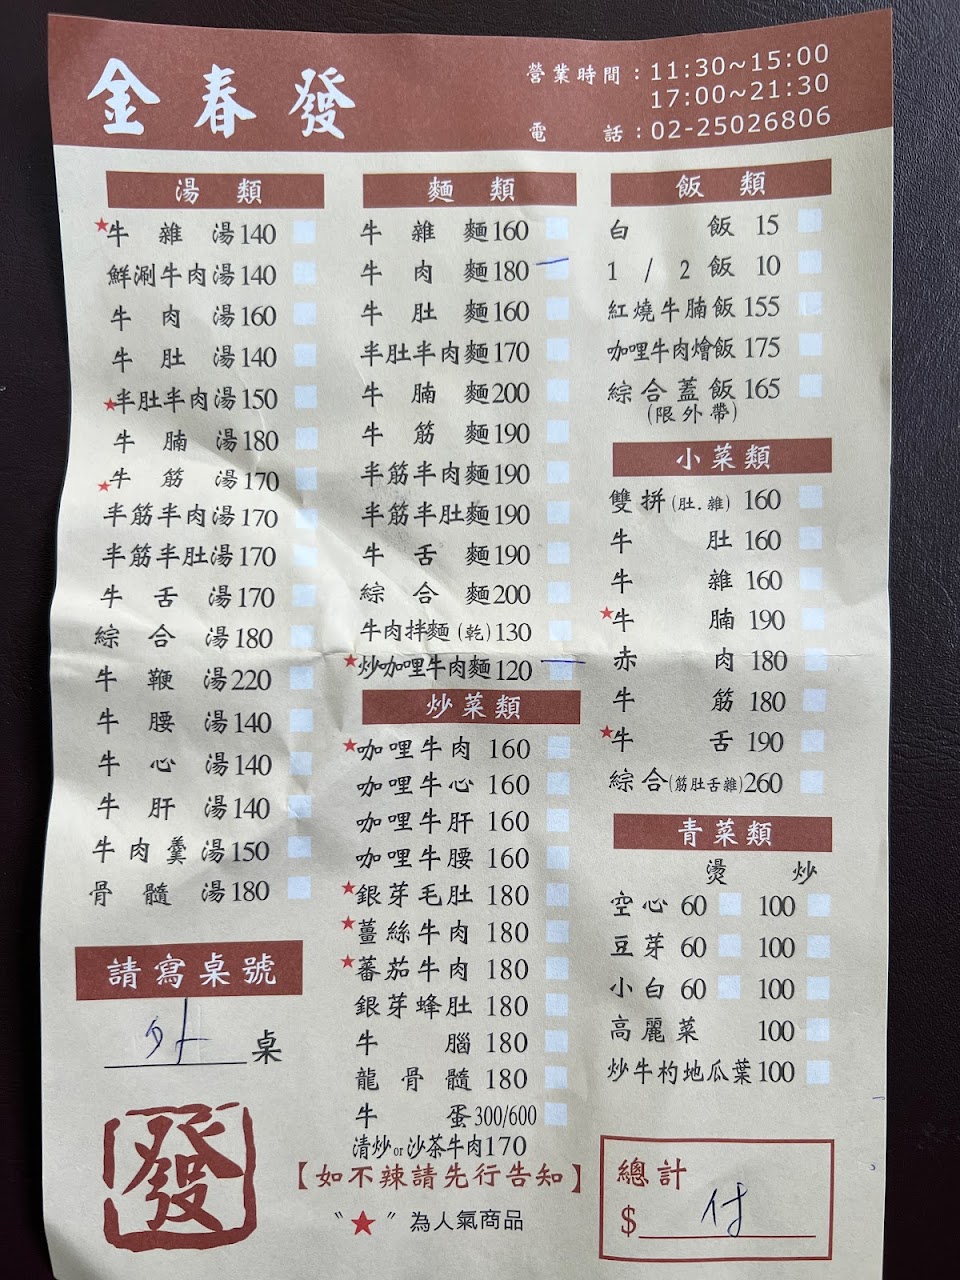 金春發
營業時間：11:30~15:00
17:00~21:30
電話：02-25026806
湯類
★牛雜湯140
鮮涮牛肉湯140
牛肉湯160
牛肚湯140
★半肚半肉湯150
牛腩湯180
★牛筋湯170
半筋半肉湯170
半筋半肚湯170
牛舌湯170
綜合湯180
牛鞭湯220
牛腰湯140
牛心湯140
牛肝湯140
牛肉羹湯150
骨髓湯180
請寫桌號
外桌
發
麵類
牛雜麵160
牛肉麵180 一
牛肚麵160
半肚半肉麵170
牛腩麵200
牛筋麵190
半筋半肉麵190
半筋半肚麵190
牛舌麵190
綜合麵200
牛肉拌麵(乾)130
★炒咖哩牛肉麵120 一
炒菜類
★咖哩牛肉 160
咖哩牛心 160
咖哩牛肝 160
咖哩牛腰 160
★銀芽毛肚 180
★薑絲牛肉 180
★蕃茄牛肉 180
銀芽蜂肚 180
牛腦 180
龍骨髓 180
牛蛋300/600
清炒or沙茶牛肉170
【如不辣請先行告知】
〝★〞為人氣商品
飯類
白飯 15
1/2飯 10
紅燒牛腩飯 155
咖哩牛肉燴飯 175
綜合蓋飯 165
(限外帶)
小菜類
雙拼(肚.雜) 160
牛肚 160
牛雜 160
★牛腩 190
赤肉 180
牛筋 180
★牛舌 190
綜合(筋肚舌雜)260
青菜類
燙 炒
空心 60 100
豆芽 60 100
小白 60 100
高麗菜 100
炒牛杓地瓜葉100
總計
$ 付